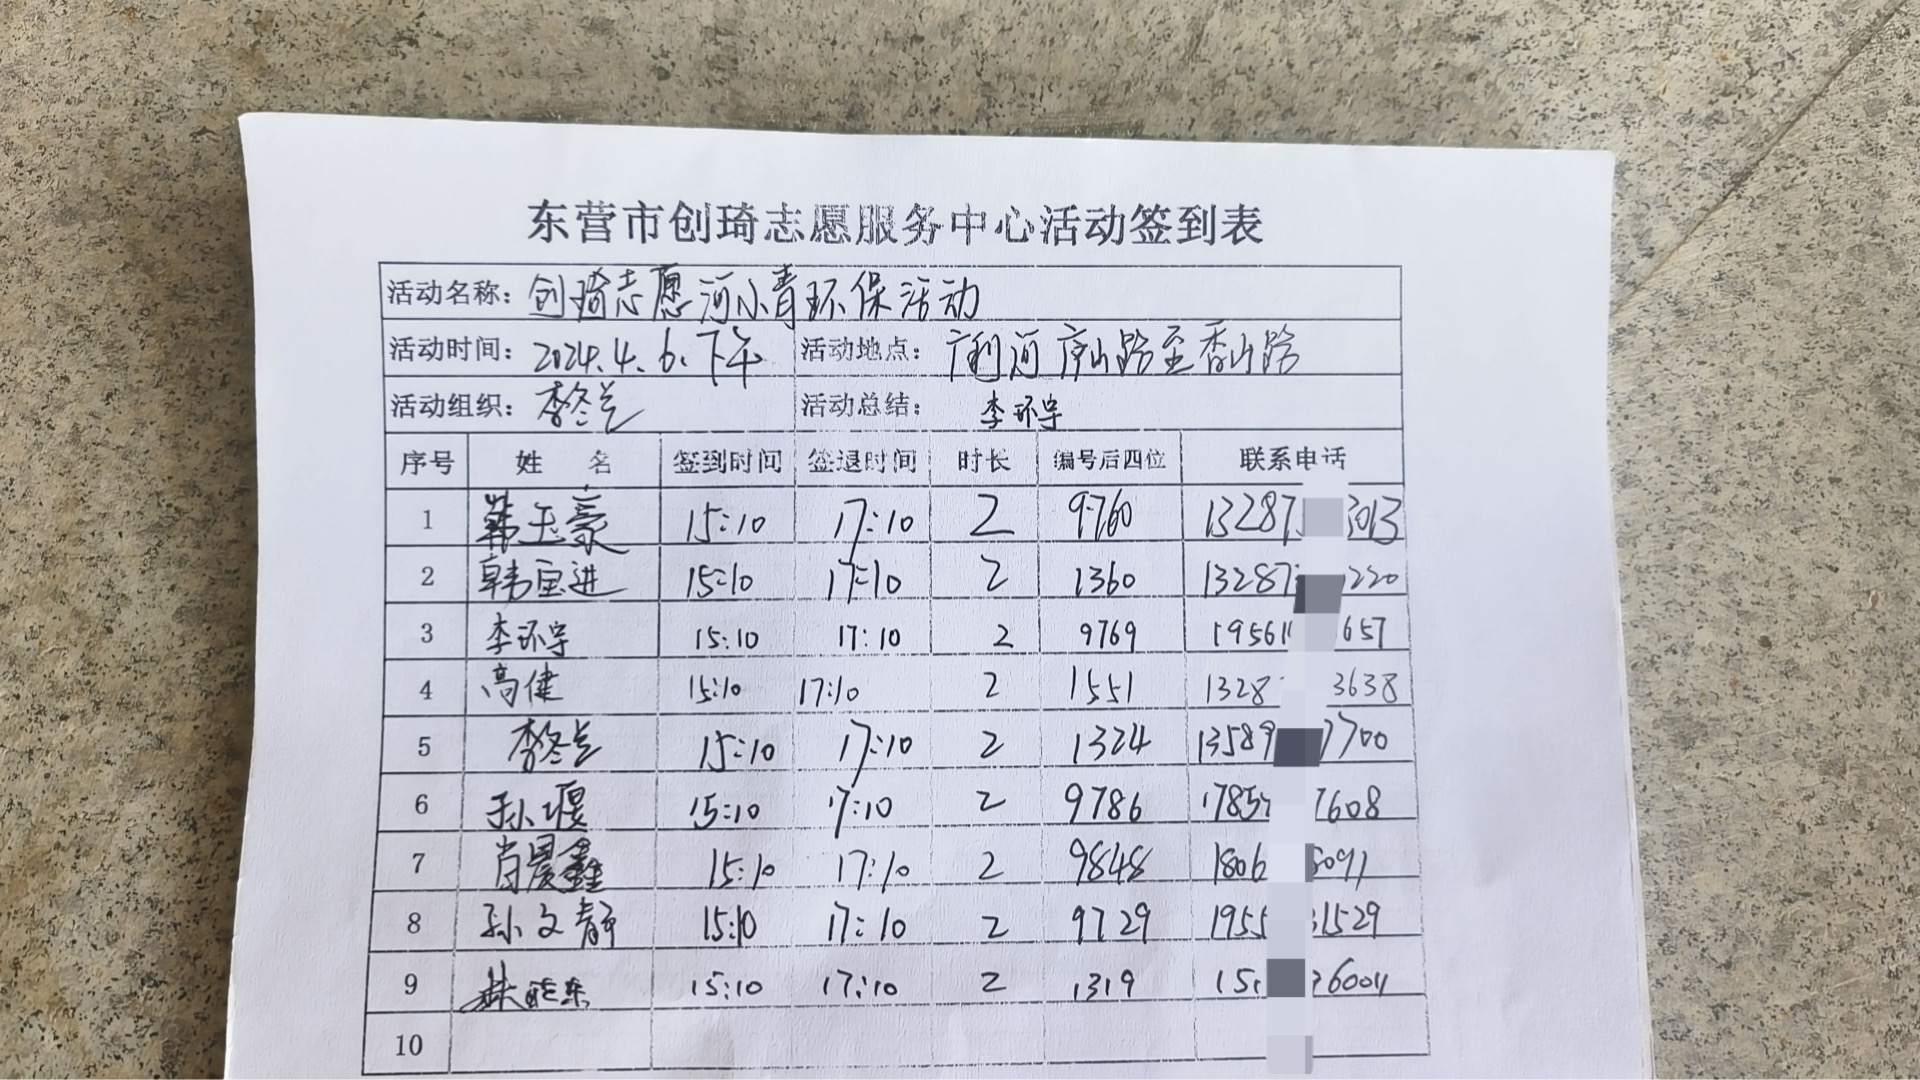 东营市创琦志愿服务中心活动签到表
活动名称：创琦志愿河小青环保活动
活动时间：2024.4.6.下午 活动地点：广利河 庐山路至香山路
活动组织：李冬兰 活动总结：李环宇
序号 姓 名 签到时间 签退时间 时长 编号后四位 联系电话
1 韩玉豪 15:10 17:10 2 9760 13287 3013
2 韩宝进 15:10 17:10 2 1360 13287 220
3 李环宇 15:10 17:10 2 9769 19561 657
4 高健 15:10 17:10 2 1551 1328 3638
5 李冬兰 15:10 17:10 2 1324 13589 7700
6 孙堰 15:10 17:10 2 9786 1785 7608
7 肖晨鑫 15:10 17:10 2 9848 1806 8091
8 孙文静 15:10 17:10 2 9729 1955 31529
9 15:10 17:10 2 1319 15 36001
10